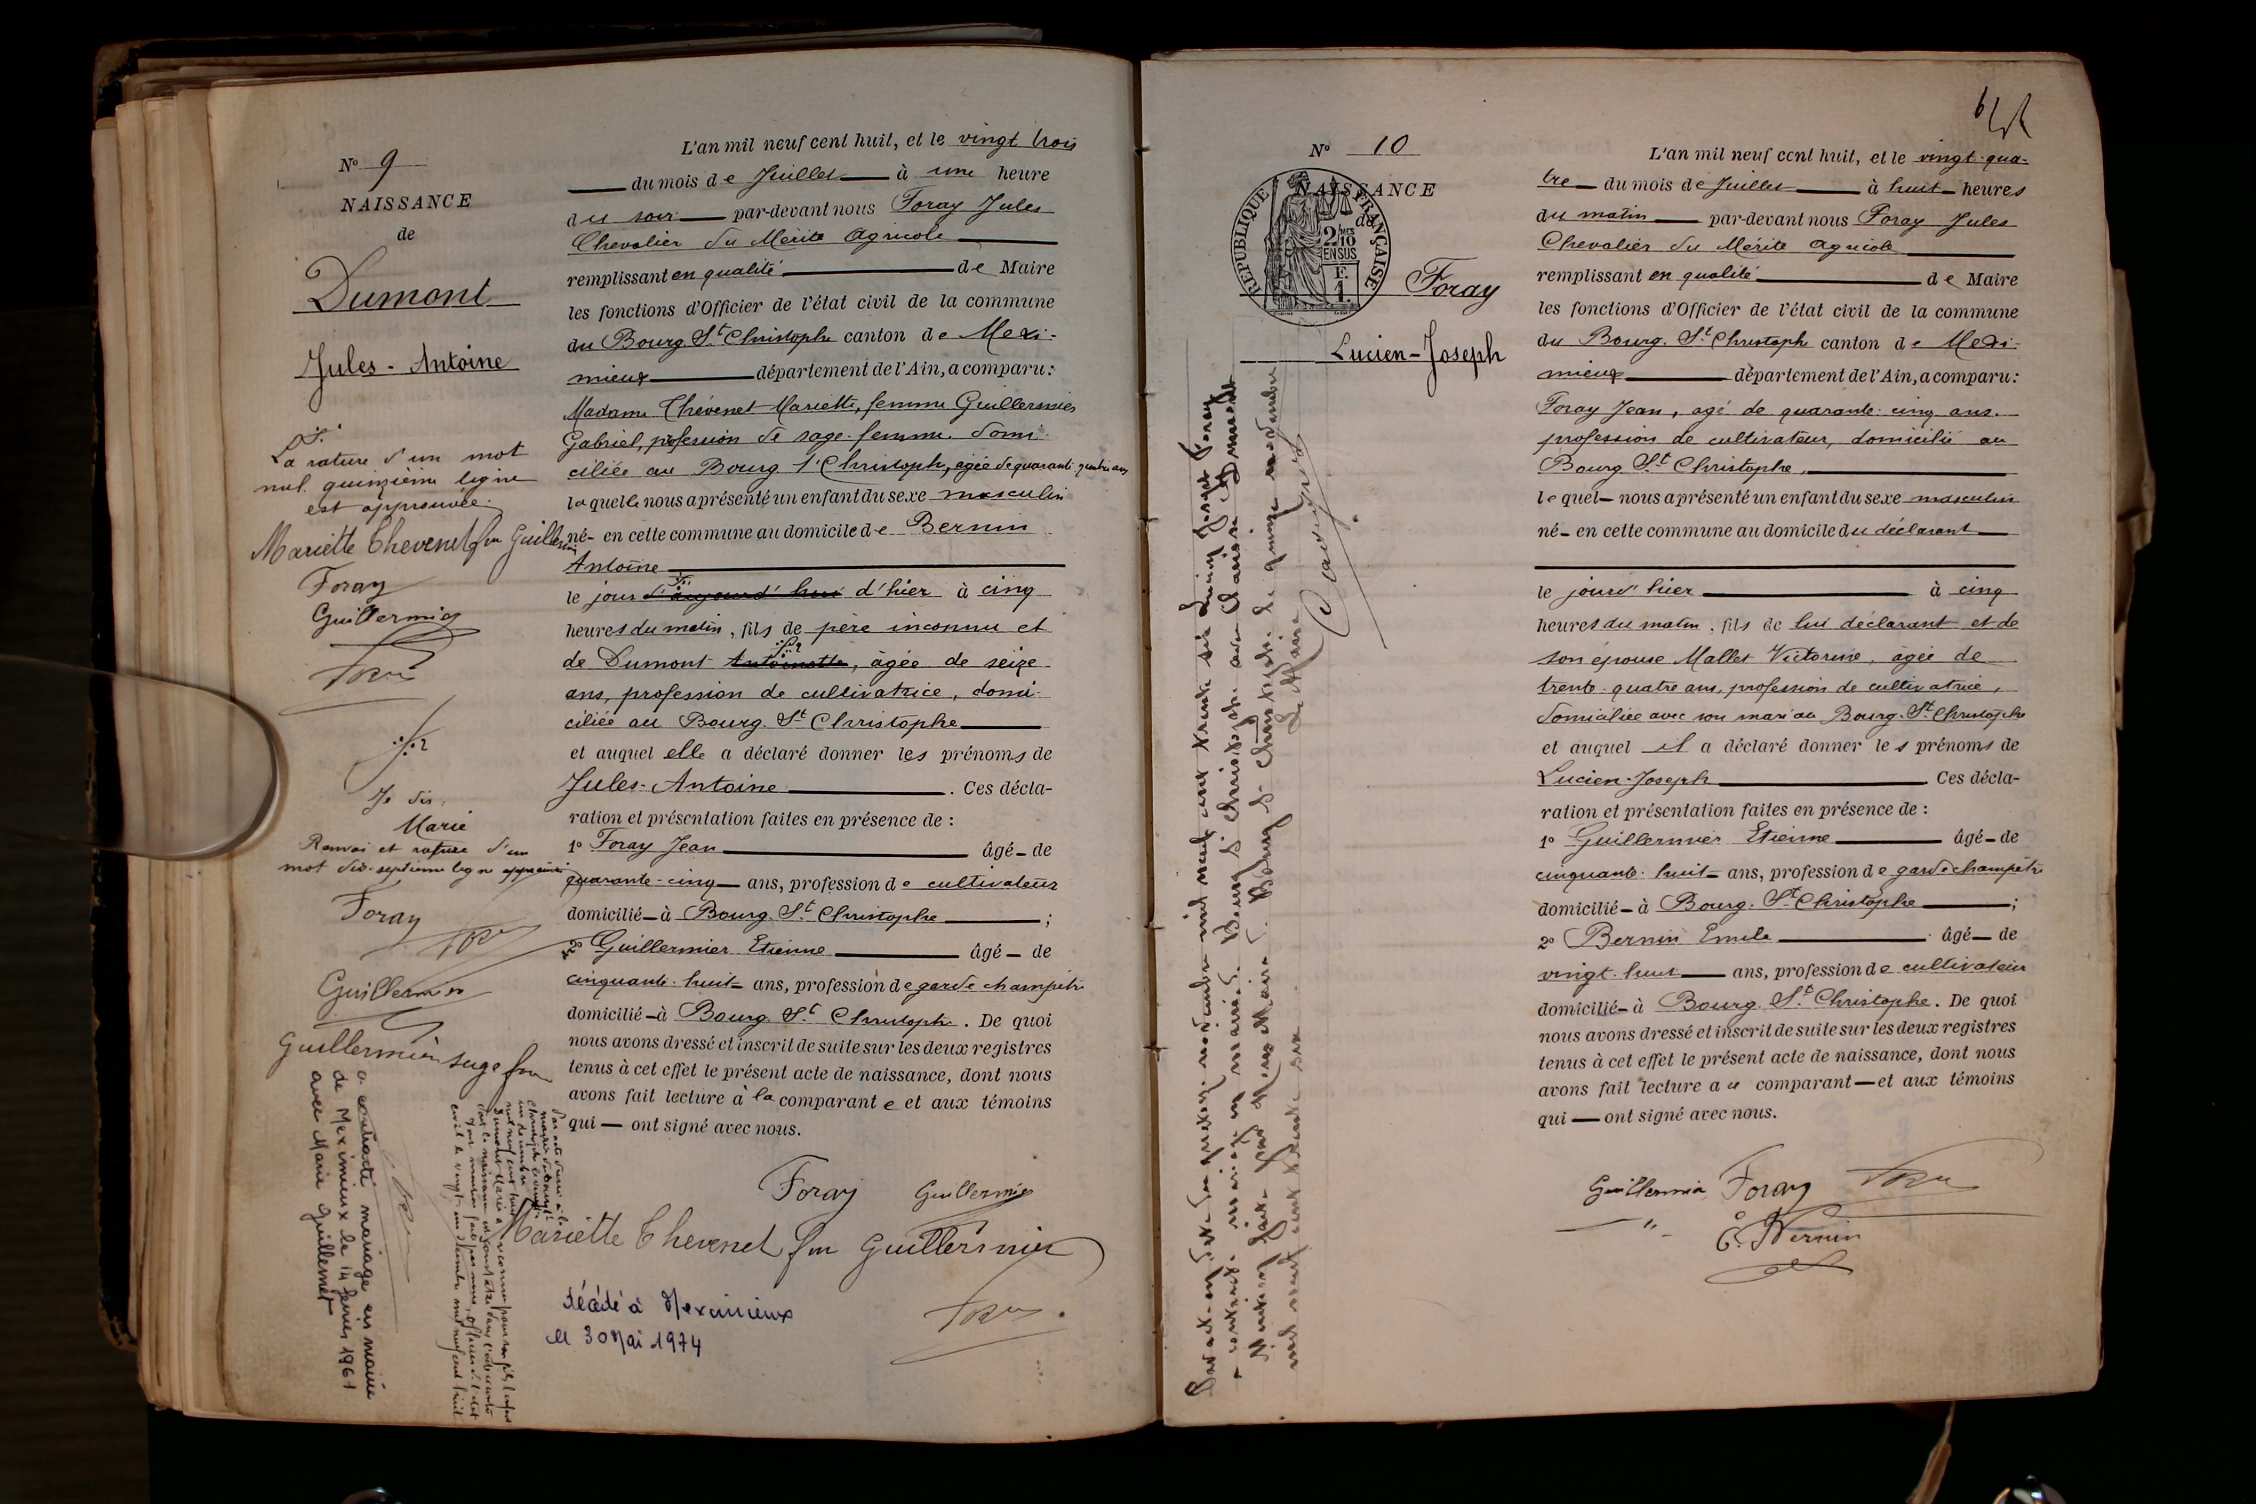 N° 9
NAISSANCE
de
Dumont
Jules-Antoine
La rature d'un mot
nul quinzième ligne
est approuvée.
Mariette Chevenet fm Guillermier
Foray
Guillermier
Je dis,
Marie
Renvoi et rature d'un
mot dix-septième ligne approuvés
Foray
Guillermier
Guillermier sage fm
a contracté mariage en mairie
de Meximieux le 14 février 1961
avec Marie Guillemet
L'an mil neuf cent huit, et le vingt trois
du mois de Juillet à une heure
du soir par-devant nous Foray Jules
Chevalier du Mérite Agricole
remplissant en qualité de Maire
les fonctions d'Officier de l'état civil de la commune
du Bourg St Christophe canton de Mexi-
mieux département de l'Ain, a comparu:
Madame Chévenet Mariette, femme Guillermier
Gabriel, profession de sage-femme domi-
ciliée au Bourg St Christophe, agée de quarante quatre ans
laquelle nous a présenté un enfant du sexe masculin
né- en cette commune au domicile de Bernin
Antoine
le jour d'aujourd'hui d'hier à cinq
heures du matin, fils de père inconnu et
de Dumont Antoinette, âgée de seize
ans, profession de cultivatrice, domi-
ciliée au Bourg St Christophe
et auquel elle a déclaré donner les prénoms de
Jules-Antoine. Ces décla-
ration et présentation faites en présence de :
1° Foray Jean âgé - de
quarante-cinq ans, profession de cultivateur
domicilié - à Bourg St Christophe ;
2° Guillermier Etienne âgé - de
cinquante-huit ans, profession de garde champêtre
domicilié - à Bourg St Christophe. De quoi
nous avons dressé et inscrit de suite sur les deux registres
tenus à cet effet le présent acte de naissance, dont nous
avons fait lecture à la comparante et aux témoins
qui — ont signé avec nous.
Foray Guillermier
Mariette Chevenet fm Guillermier
décédé à Meximieux
le 30 Mai 1974
N° 10
NAISSANCE
de
REPUBLIQUE FRANÇAISE
2/10
EN SUS
F.
1.
Foray
Lucien-Joseph
a contracté mariage en mairie de Bourg St Christophe avec
Mention faite par Nous Maire de Bourg St Christophe le quinze novembre
mil neuf cent trente six
Le Maire
L'an mil neuf cent huit, et le vingt-qua-
tre du mois de Juillet à huit heures
du matin par-devant nous Foray Jules
Chevalier du Mérite agricole
remplissant en qualité de Maire
les fonctions d'Officier de l'état civil de la commune
du Bourg St Christophe canton de Mexi-
mieux département de l'Ain, a comparu:
Foray Jean, agé de quarante-cinq ans.
profession de cultivateur, domicilié au
Bourg St Christophe,
lequel - nous a présenté un enfant du sexe masculin
né - en cette commune au domicile du déclarant
le jour d'hier à cinq
heures du matin, fils de lui déclarant et de
son épouse Mallet Victorine, âgée de
trente-quatre ans, profession de cultivatrice,
domiciliée avec son mari au Bourg-St Christophe
et auquel il a déclaré donner les prénoms de
Lucien-Joseph Ces décla-
ration et présentation faites en présence de :
1° Guillermier Etienne âgé - de
cinquante-huit ans, profession de garde champêtre
domicilié - à Bourg-St Christophe ;
2° Bernin Emile âgé — de
vingt-huit ans, profession de cultivateur
domicilié - à Bourg St Christophe. De quoi
nous avons dressé et inscrit de suite sur les deux registres
tenus à cet effet le présent acte de naissance, dont nous
avons fait lecture au comparant — et aux témoins
qui — ont signé avec nous.
Guillermier Foray
E. Bernin